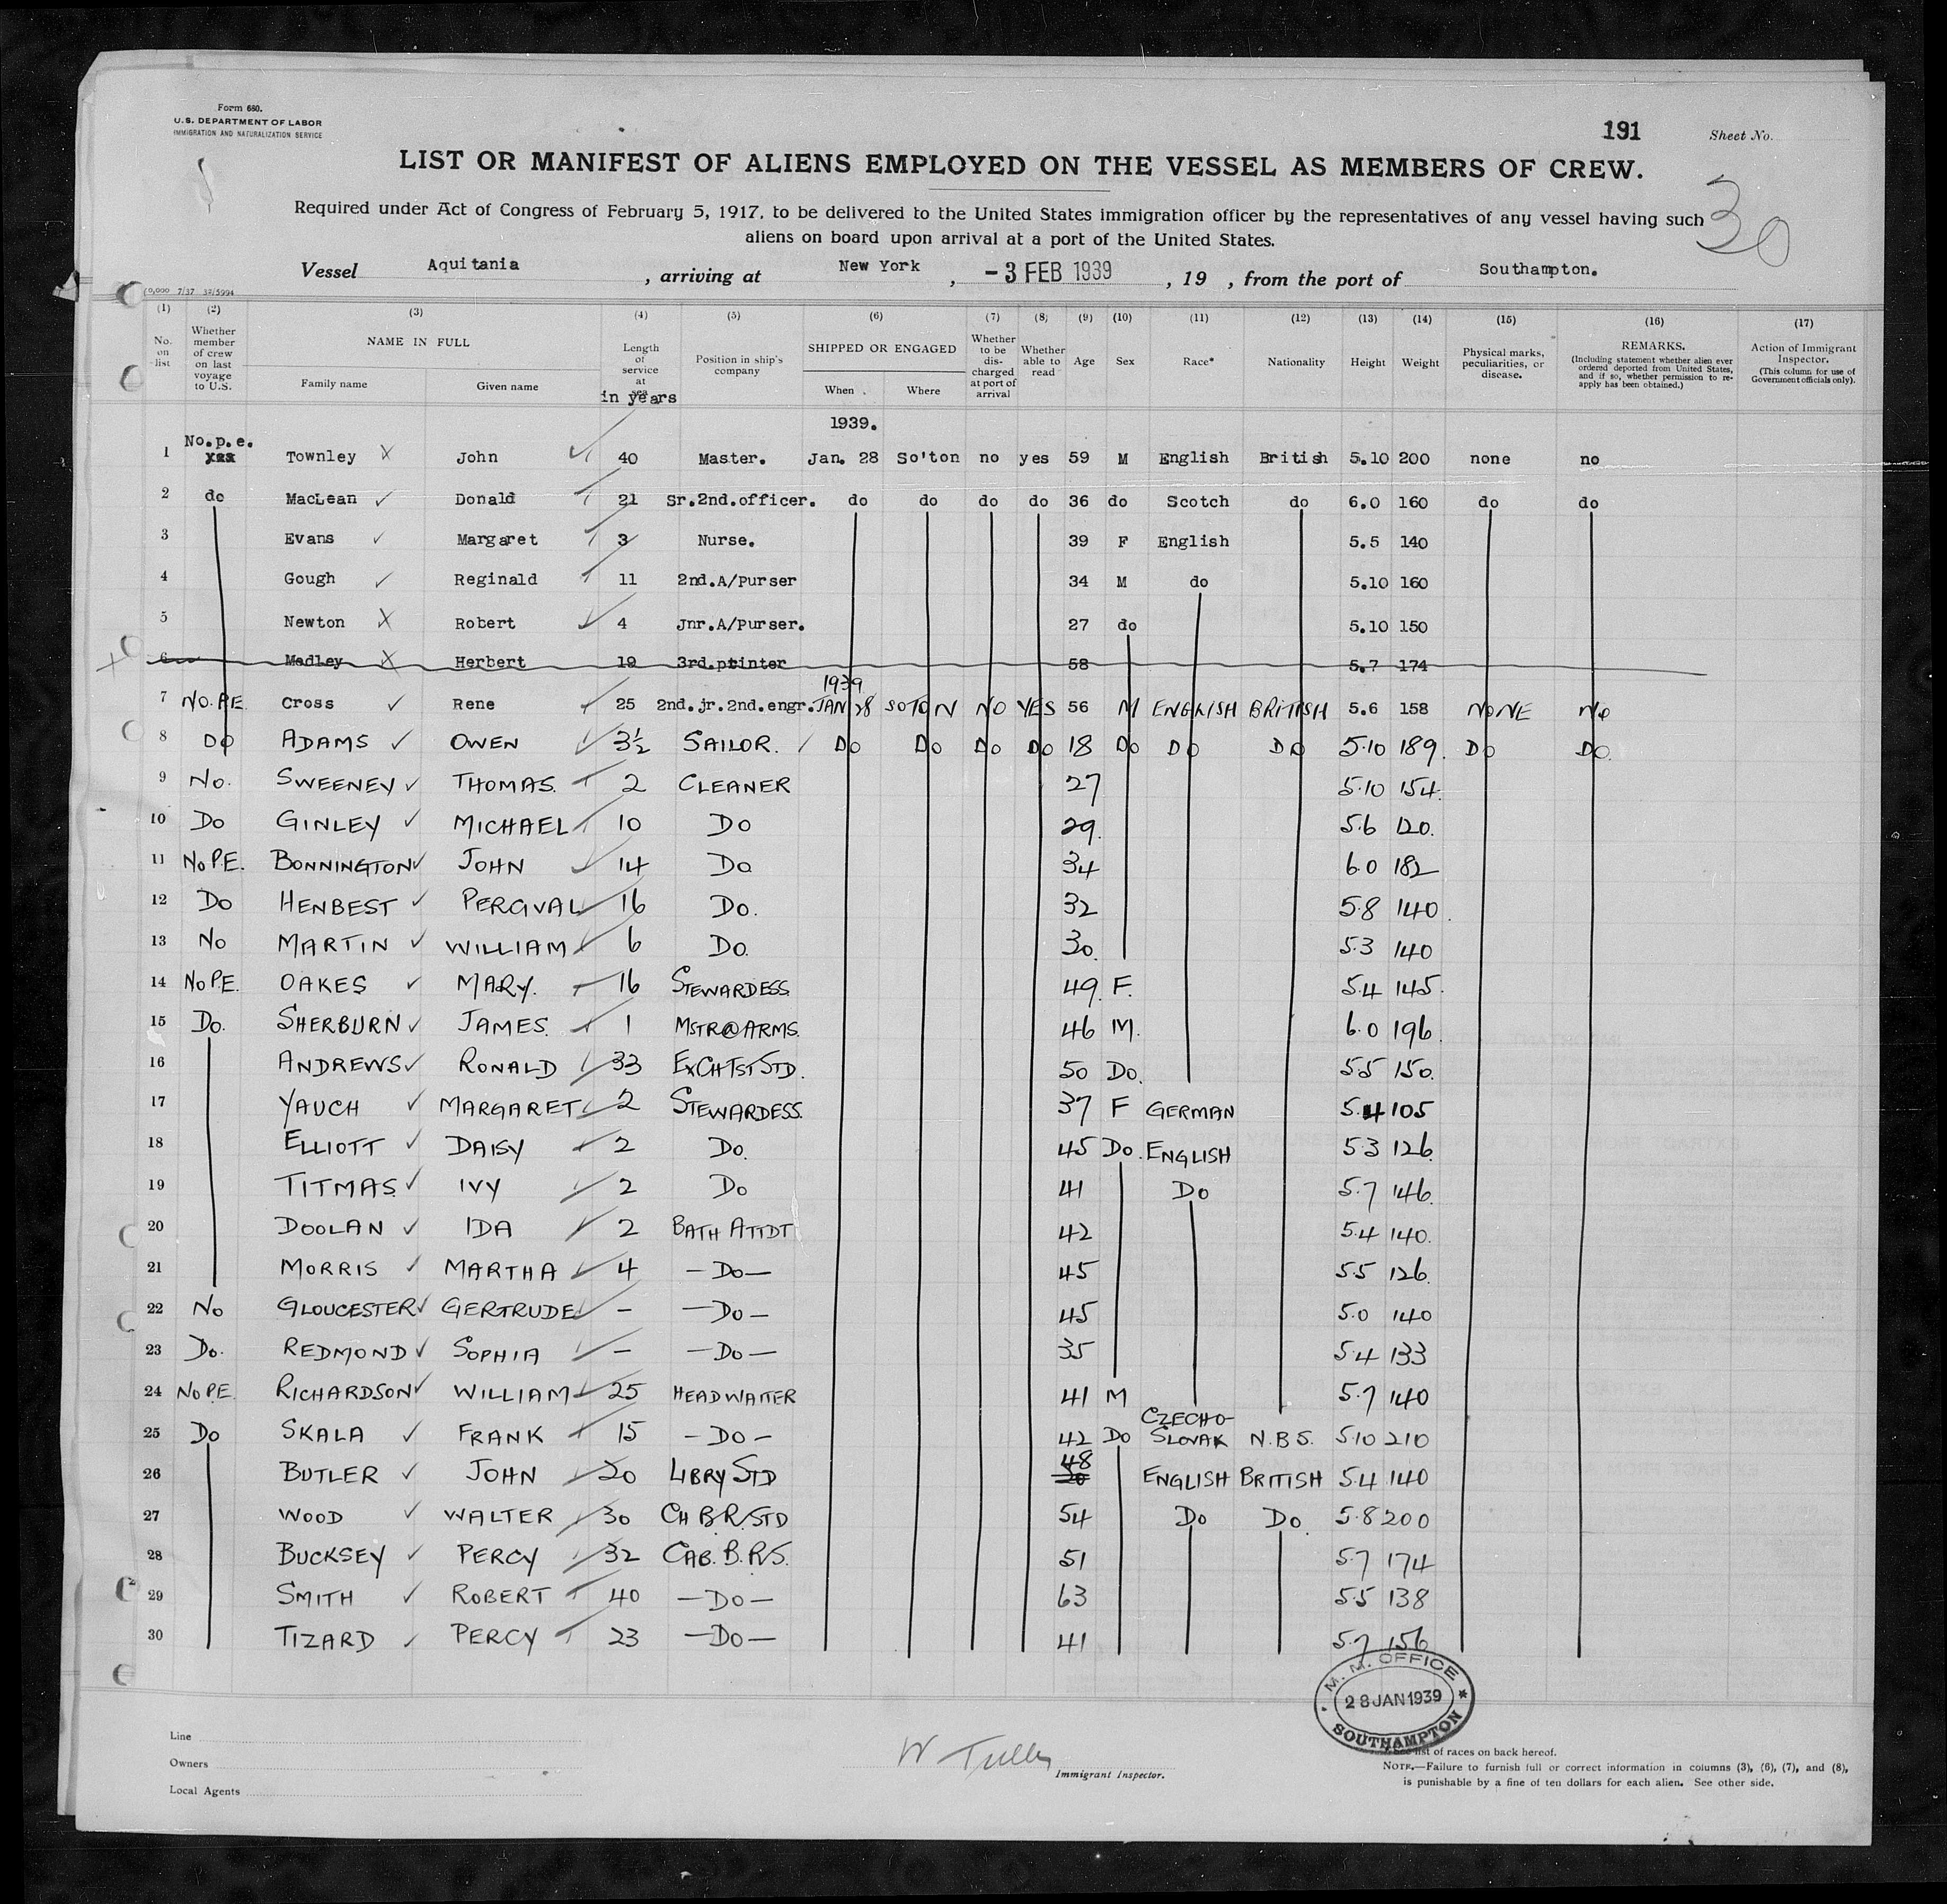 Form 680.
U.S. DEPARTMENT OF LABOR
IMMIGRATION AND NATURALIZATION SERVICE
191 Sheet No.
LIST OR MANIFEST OF ALIENS EMPLOYED ON THE VESSEL AS MEMBERS OF CREW.
30
Required under Act of Congress of February 5, 1917, to be delivered to the United States immigration officer by the representatives of any vessel having such
aliens on board upon arrival at a port of the United States.
Vessel Aquitania , arriving at New York , -3 FEB 1939 , 19 , from the port of Southampton.
(1) (2) (3) (4) (5) (6) (7) (8) (9) (10) (11) (12) (13) (14) (15) (16) (17)
No. on list
Whether member of crew on last voyage to U.S.
NAME IN FULL
Family name Given name
Length of service at sea in years
Position in ship's company
SHIPPED OR ENGAGED
When Where
Whether to be discharged at port of arrival
Whether able to read
Age Sex Race* Nationality Height Weight
Physical marks, peculiarities, or disease.
REMARKS.
(Including statement whether alien ever ordered deported from United States, and if so, whether permission to re-apply has been obtained.)
Action of Immigrant Inspector.
(This column for use of Government officials only).
1939.
1 No.p.e. Townley John 40 Master. Jan. 28 So'ton no yes 59 M English British 5.10 200 none no
2 do MacLean Donald 21 Sr.2nd.officer. do do do do 36 do Scotch do 6.0 160 do do
3 Evans Margaret 3 Nurse. 39 F English 5.5 140
4 Gough Reginald 11 2nd.A/Purser 34 M do 5.10 160
5 Newton Robert 4 Jnr.A/Purser. 27 do 5.10 150
6 Madley Herbert 19 3rd.ptinter 58 5.7 174
1939
7 NO.P.E. Cross Rene 25 2nd.jr.2nd.engr. JAN 28 SOTON NO YES 56 M ENGLISH BRITISH 5.6 158 NONE No
8 DO ADAMS OWEN 3½ SAILOR. DO DO DO DO 18 DO DO DO 5.10 189. DO DO.
9 NO. SWEENEY THOMAS. 2 CLEANER 27 5.10 154.
10 DO GINLEY MICHAEL 10 DO 29. 5.6 120.
11 NO P.E. BONNINGTON JOHN 14 DO 34 6.0 182
12 DO HENBEST PERCIVAL 16 DO. 32 5.8 140.
13 NO MARTIN WILLIAM 6 DO. 30. 5.3 140
14 NO P.E. OAKES MARY. 16 STEWARDESS. 49. F. 5.4 145.
15 DO. SHERBURN JAMES. 1 MSTR@ARMS. 46 M. 6.0 196.
16 ANDREWS RONALD 33 EXCHTSTSTD. 50 DO. 5.5 150.
17 YAUCH MARGARET 2 STEWARDESS. 37 F GERMAN 5.4 105
18 ELLIOTT DAISY 2 DO. 45 DO. ENGLISH 5.3 126.
19 TITMAS. IVY 2 DO 41 DO 5.7 146.
20 DOOLAN IDA 2 BATH ATTDT 42 5.4 140.
21 MORRIS MARTHA 4 -DO- 45 5.5 126.
22 NO GLOUCESTER GERTRUDE - -DO- 45 5.0 140
23 DO. REDMOND SOPHIA - -DO- 35 5.4 133
24 NO P.E. RICHARDSON WILLIAM 25 HEADWAITER 41 M 5.7 140
25 DO SKALA FRANK 15 -DO- 42 DO CZECHO-SLOVAK N.B.S. 5.10 210
26 BUTLER JOHN 20 LIBRY STD 48 ENGLISH BRITISH 5.4 140
27 WOOD WALTER 30 CH B.R. STD 54 DO DO. 5.8 200
28 BUCKSEY PERCY 32 CAB. B.R.S. 51 5.7 174
29 SMITH ROBERT 40 -DO- 63 5.5 138
30 TIZARD PERCY 23 -DO- 41 5.7 156
M. M. OFFICE
28 JAN 1939
SOUTHAMPTON
Line
Owners
Local Agents
Immigrant Inspector.
list of races on back hereof.
NOTE.—Failure to furnish full or correct information in columns (3), (6), (7), and (8),
is punishable by a fine of ten dollars for each alien. See other side.